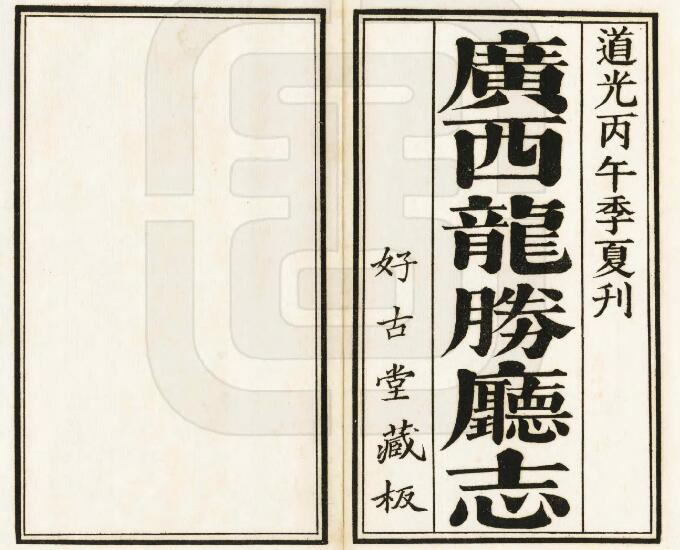 道光丙午季夏刊
廣西龍勝廳志
好古堂藏板